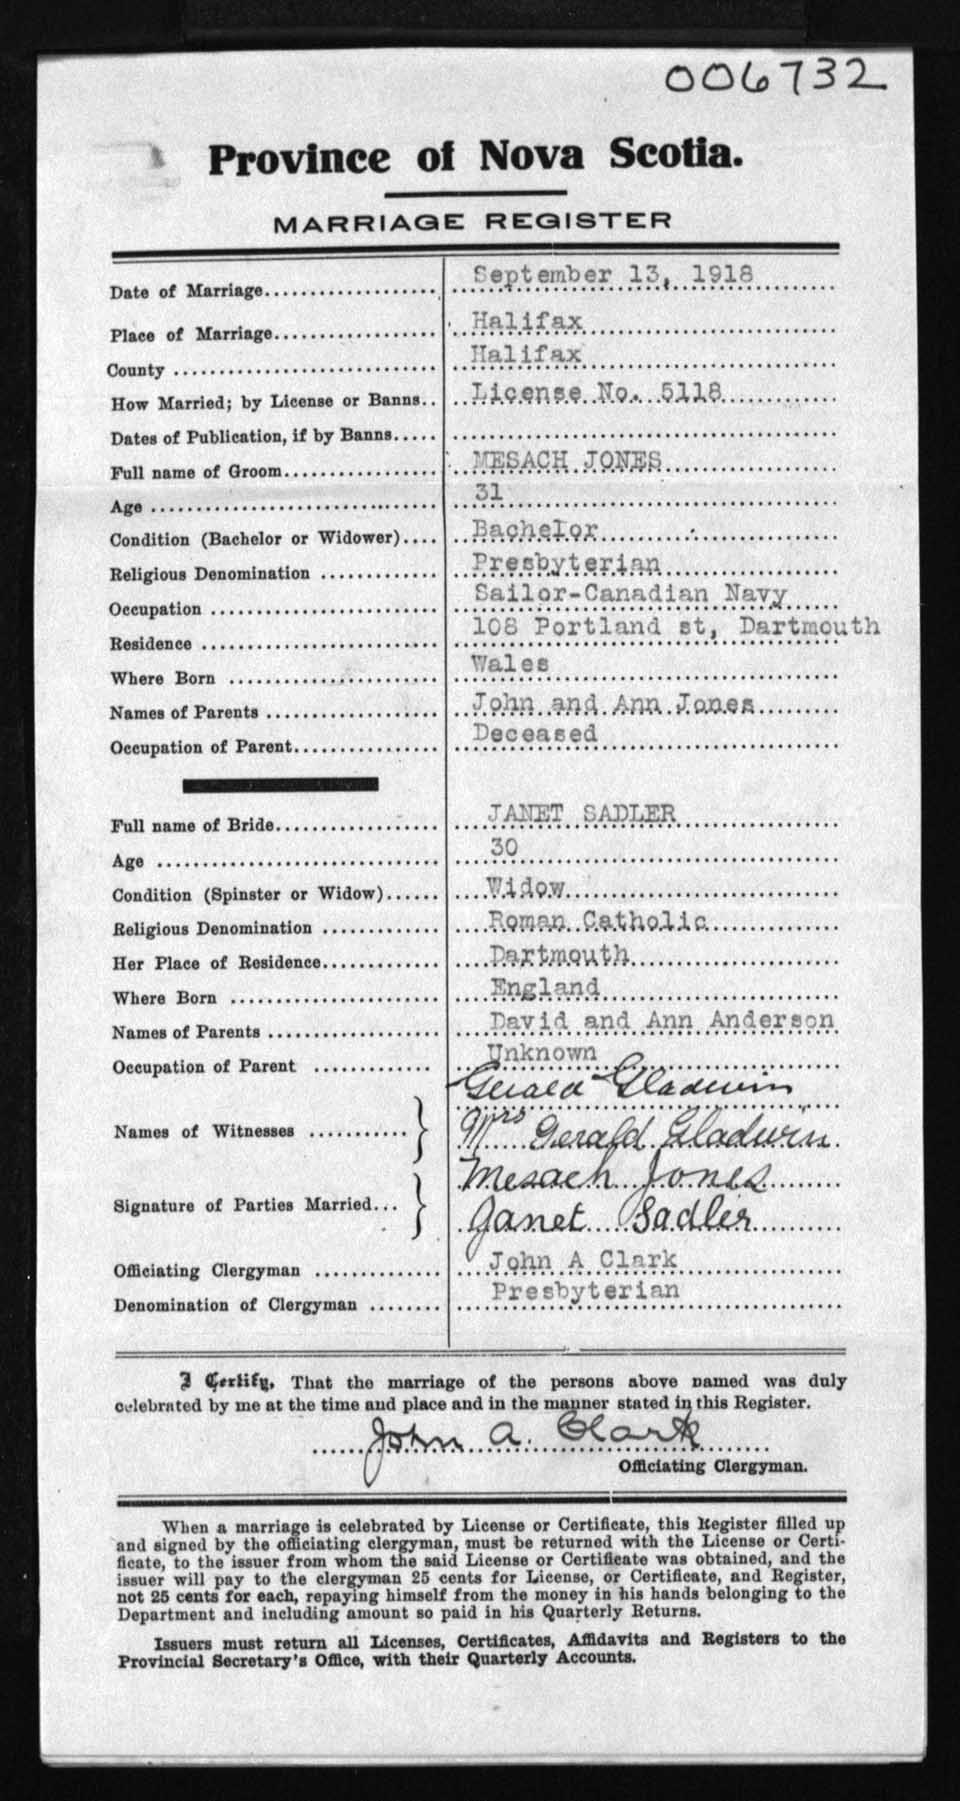 006732
Province of Nova Scotia.
MARRIAGE REGISTER
Date of Marriage.................... September 13, 1918
Place of Marriage.................. Halifax
County ............................. Halifax
How Married; by License or Banns.. License No. 5118
Dates of Publication, if by Banns.....
Full name of Groom................. MESACH JONES
Age ................................ 31
Condition (Bachelor or Widower).... Bachelor
Religious Denomination ............. Presbyterian
Occupation ......................... Sailor-Canadian Navy
Residence .......................... 108 Portland st, Dartmouth
Where Born ....................... Wales
Names of Parents ................... John and Ann Jones
Occupation of Parent................ Deceased
Full name of Bride.................. JANET SADLER
Age ............................... 30
Condition (Spinster or Widow)...... Widow
Religious Denomination ............. Roman Catholic
Her Place of Residence............. Dartmouth
Where Born ....................... England
Names of Parents ................... David and Ann Anderson
Occupation of Parent ............. Unknown
Gerald Gladwin
Names of Witnesses ........... } Mrs Gerald Gladwin
Mesach Jones
Signature of Parties Married... } Janet Sadler
Officiating Clergyman .............. John A Clark
Denomination of Clergyman ........ Presbyterian
I Certify, That the marriage of the persons above named was duly
celebrated by me at the time and place and in the manner stated in this Register.
John A. Clark
Officiating Clergyman.
When a marriage is celebrated by License or Certificate, this Register filled up
and signed by the officiating clergyman, must be returned with the License or Certi-
ficate, to the issuer from whom the said License or Certificate was obtained, and the
issuer will pay to the clergyman 25 cents for License, or Certificate, and Register,
not 25 cents for each, repaying himself from the money in his hands belonging to the
Department and including amount so paid in his Quarterly Returns.
Issuers must return all Licenses, Certificates, Affidavits and Registers to the
Provincial Secretary's Office, with their Quarterly Accounts.